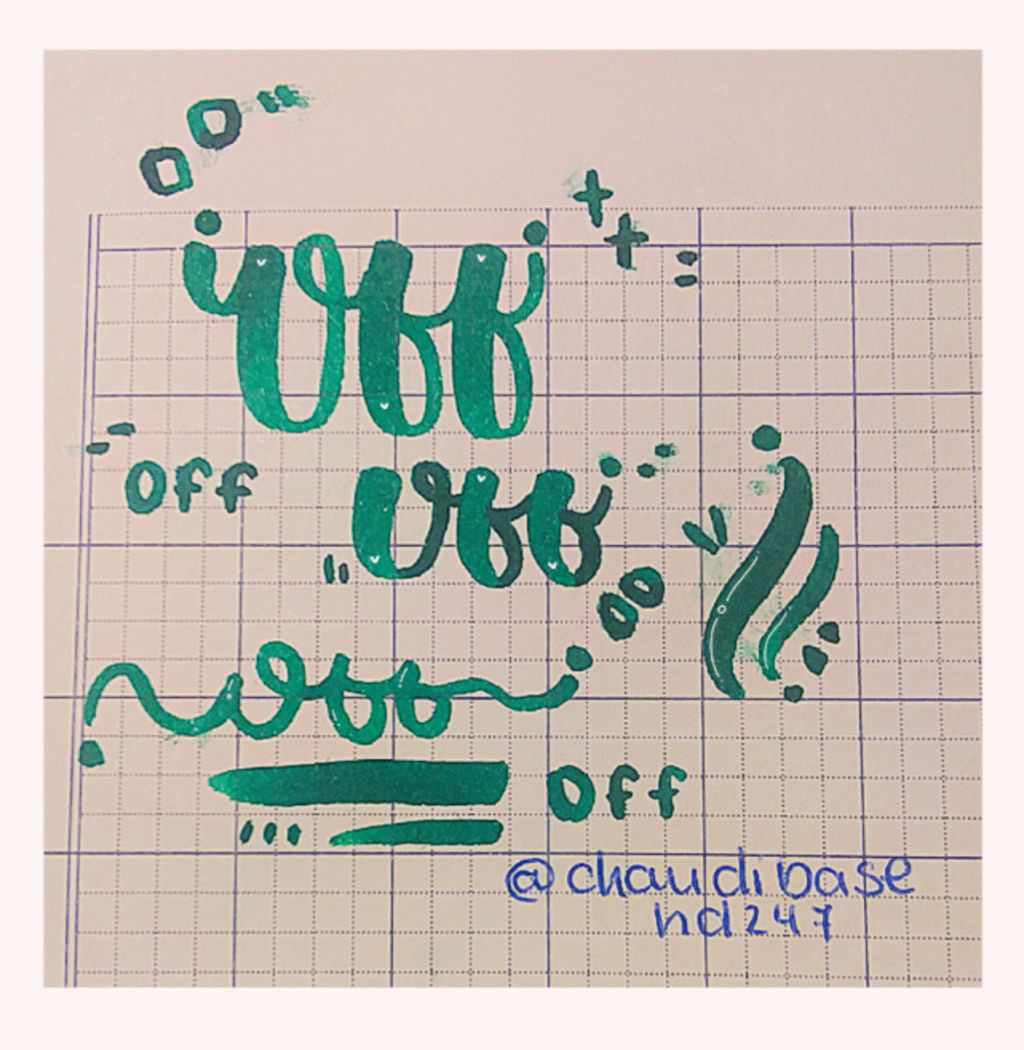 off
off
off
off
off
@chaudibase
hd247